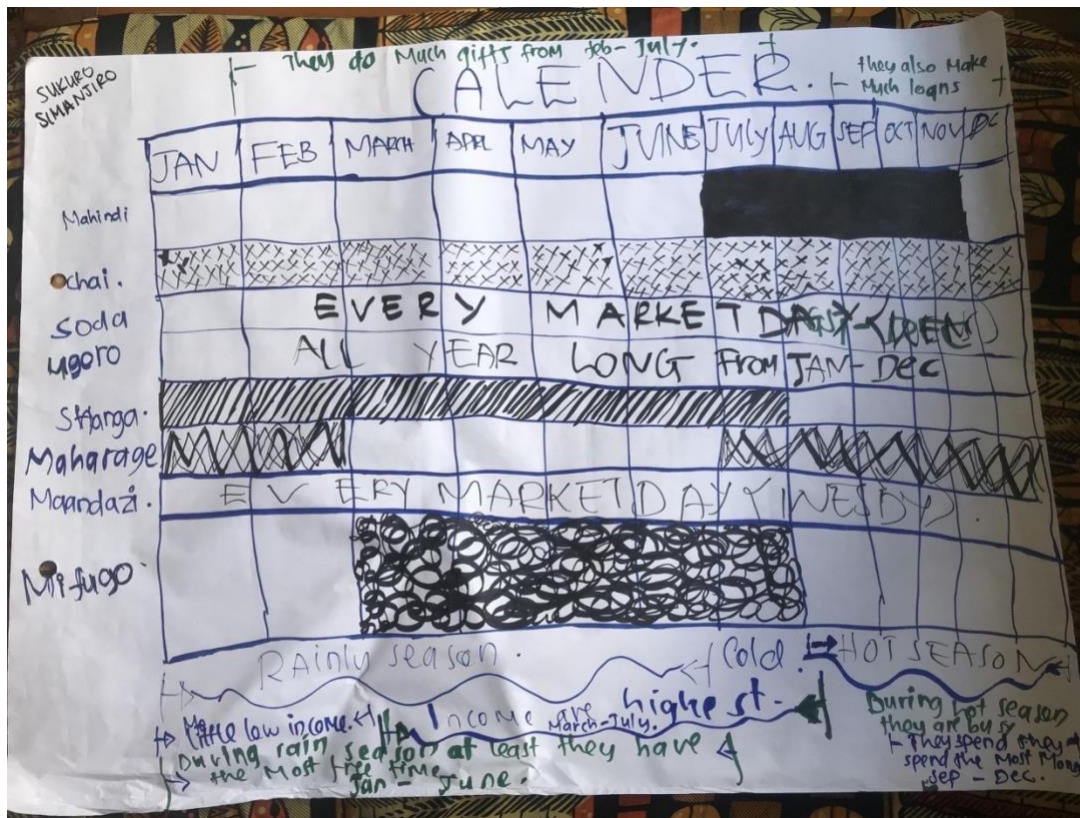 SUKURO
SIMANJIRO
They do Much gifts from feb - July.
CALENDER.
they also Make
Much loans
JAN FEB MARCH APRL MAY JUNE JULY AUG SEP OCT NOV DC
Mahindi
Chai.
Soda EVERY MARKET DAY
ugoro ALL YEAR LONG From JAN - Dec
Maharage
Maandazi. EVERY MARKET DAY
Mifugo
RAINLY season. Cold. HOT SEASON
little low income. Income highest.
March - July.
During rain season at least they have
the Most free time
Jan - June.
During hot season
they are busy
They spend they
spend the Most
Sep - Dec.